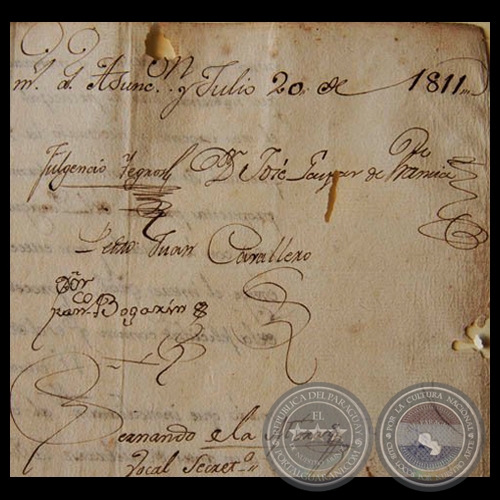 m.s d.s Asunc..on y Julio 20. de 1811..
Fulgencio Yegros Dr. José Gaspar de Francia
Pedro Juan Cavallero
Dor
Franco Bogarin
Fernando de la Mora
Vocal Secreto
REPUBLICA DEL PARAGUAY
EL
PORTALGUARANI.COM
DE LA CULTURA NACIONAL